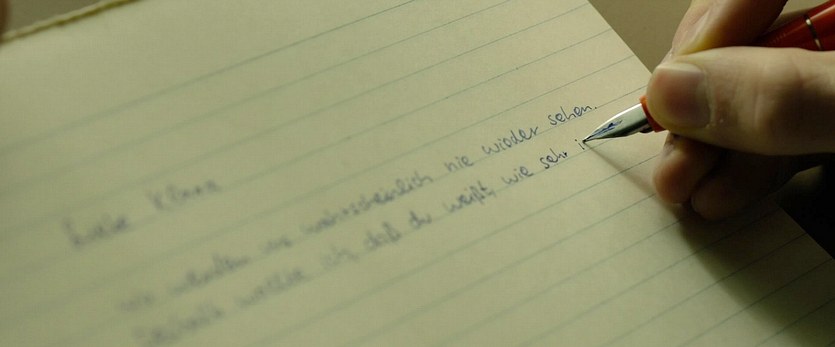 Liebe Klara
wir werden uns wahrscheinlich nie wieder sehen.
wollte ich daß du weißt, wie sehr i